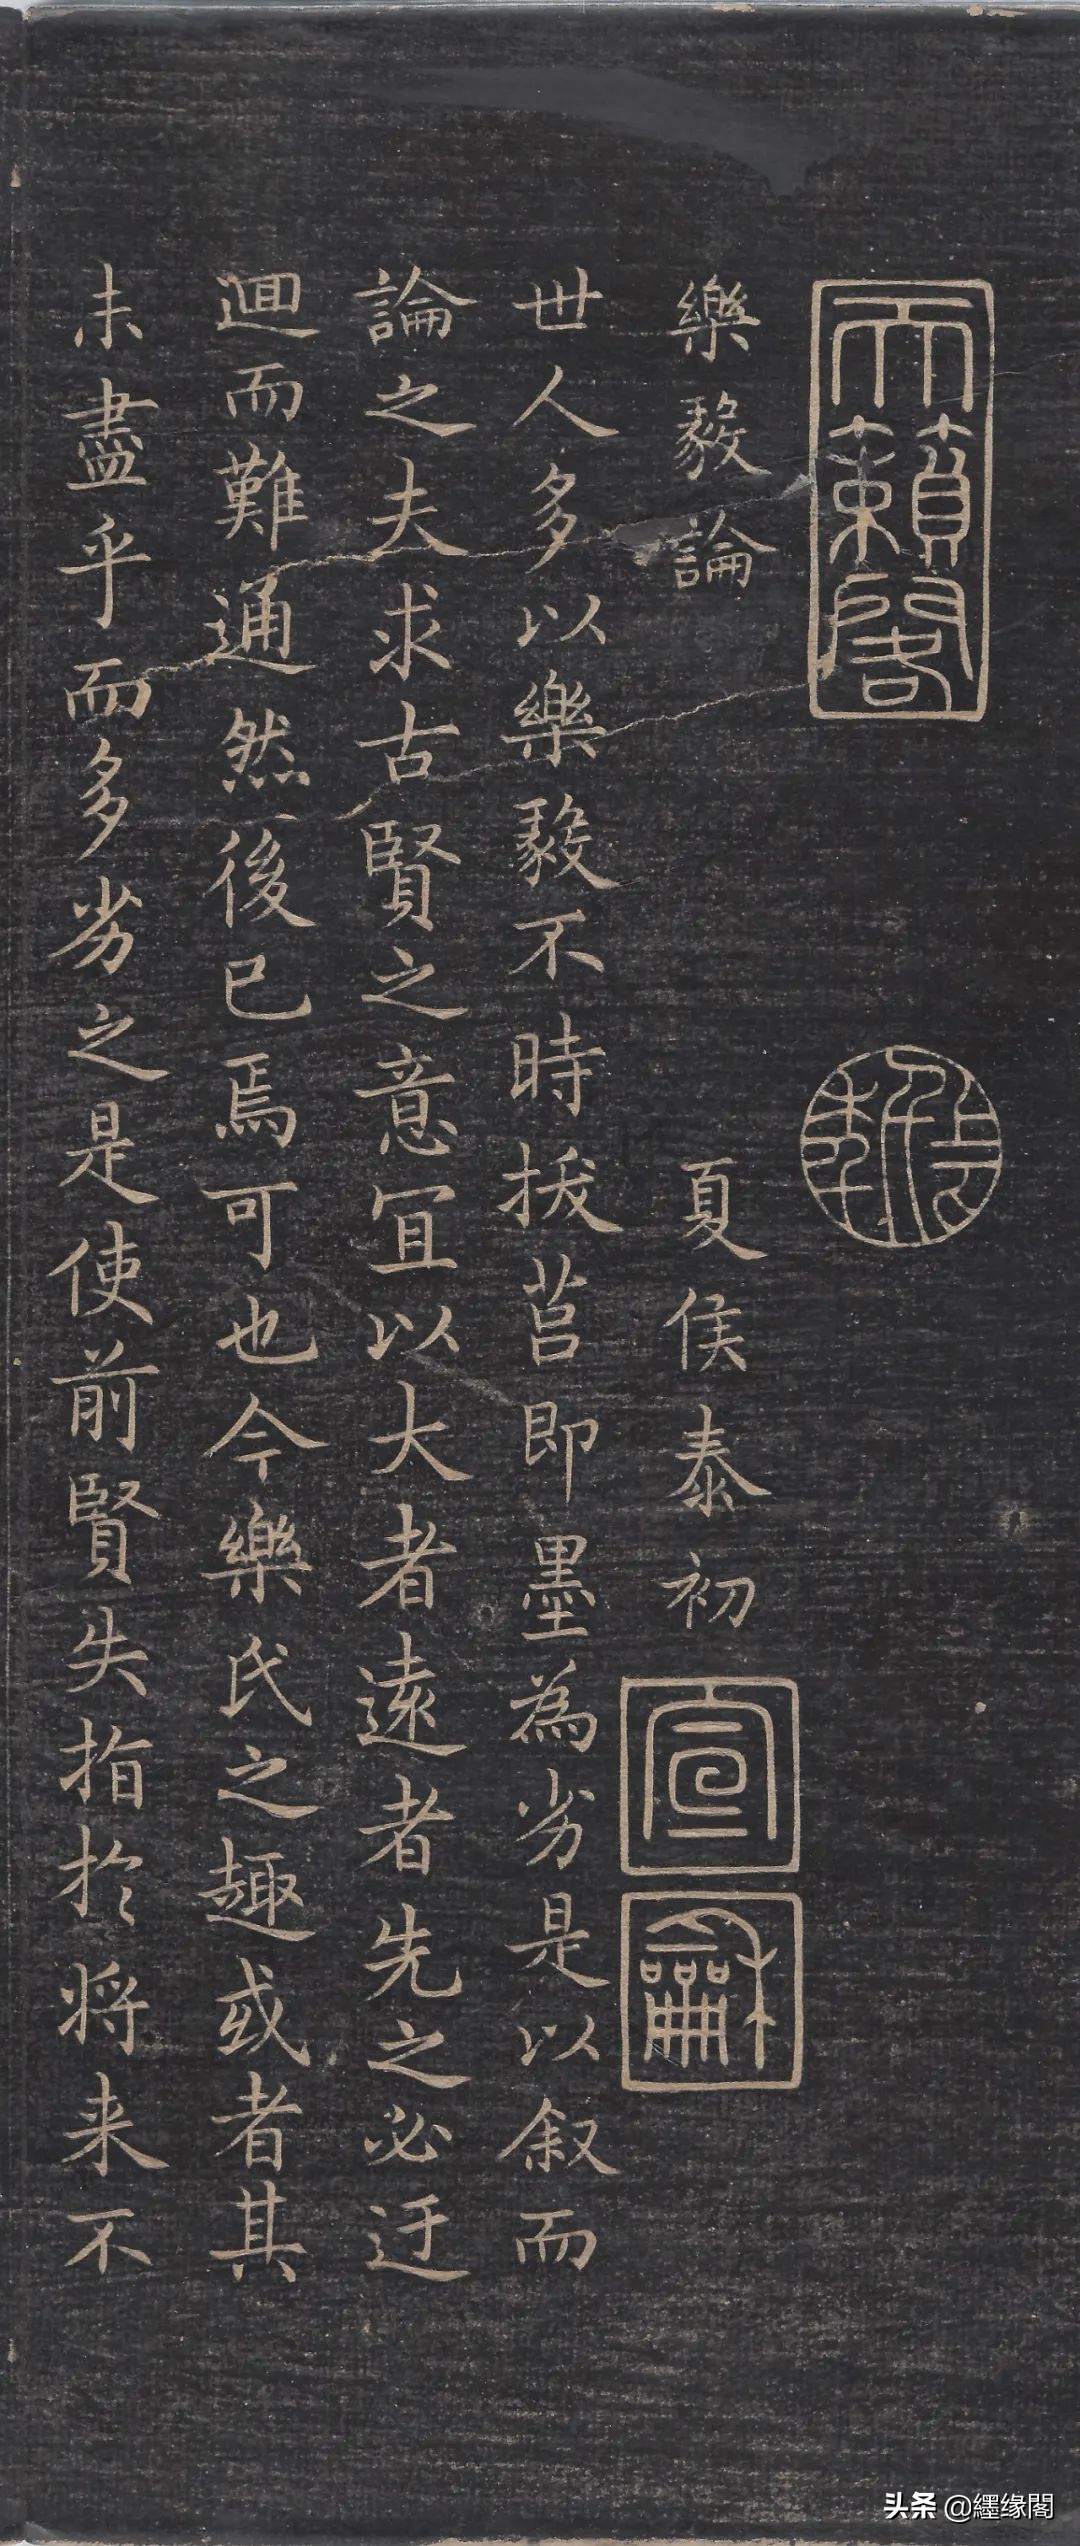 天籟閣
樂毅論 夏侯泰初
宣
龢
世人多以樂毅不時拔莒即墨為劣是以叙而
論之夫求古賢之意冝以大者遠者先之必迂
迴而難通然後已焉可也今樂氏之趣或者其
未盡乎而多劣之是使前賢失指於將来不
头条 @纆缘閣